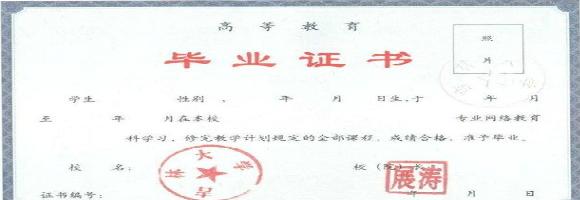 高等教育
毕业证书
照
片
学生 性别 , 年 月 日生,于 年 月
至 年 月在本校 专业网络教育
科学习,修完教学计划规定的全部课程,成绩合格,准予毕业。
校 名: 校(院)长
吉林大学
展涛
证书编号: 年 月 日